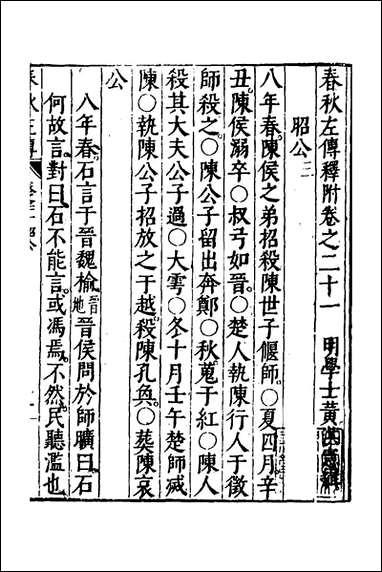 春秋左傳釋附卷之二十一　明學士黃
昭公三
八年春。陳侯之弟招殺陳世子偃師。〇夏四月辛
丑。陳侯溺卒〇叔弓如晉。〇楚人執陳行人于徵
師殺之。〇陳公子留出奔鄭〇秋。蒐于紅〇陳人
殺其大夫公子過〇大雩〇冬十月壬午楚師滅
陳〇執陳公子招放之于越。殺陳孔奐。〇葬陳哀
公
八年春。石言于晉魏榆晉地晉侯問於師曠曰。石
何故言。對曰。石不能言。或馮焉。不然。民聽濫也